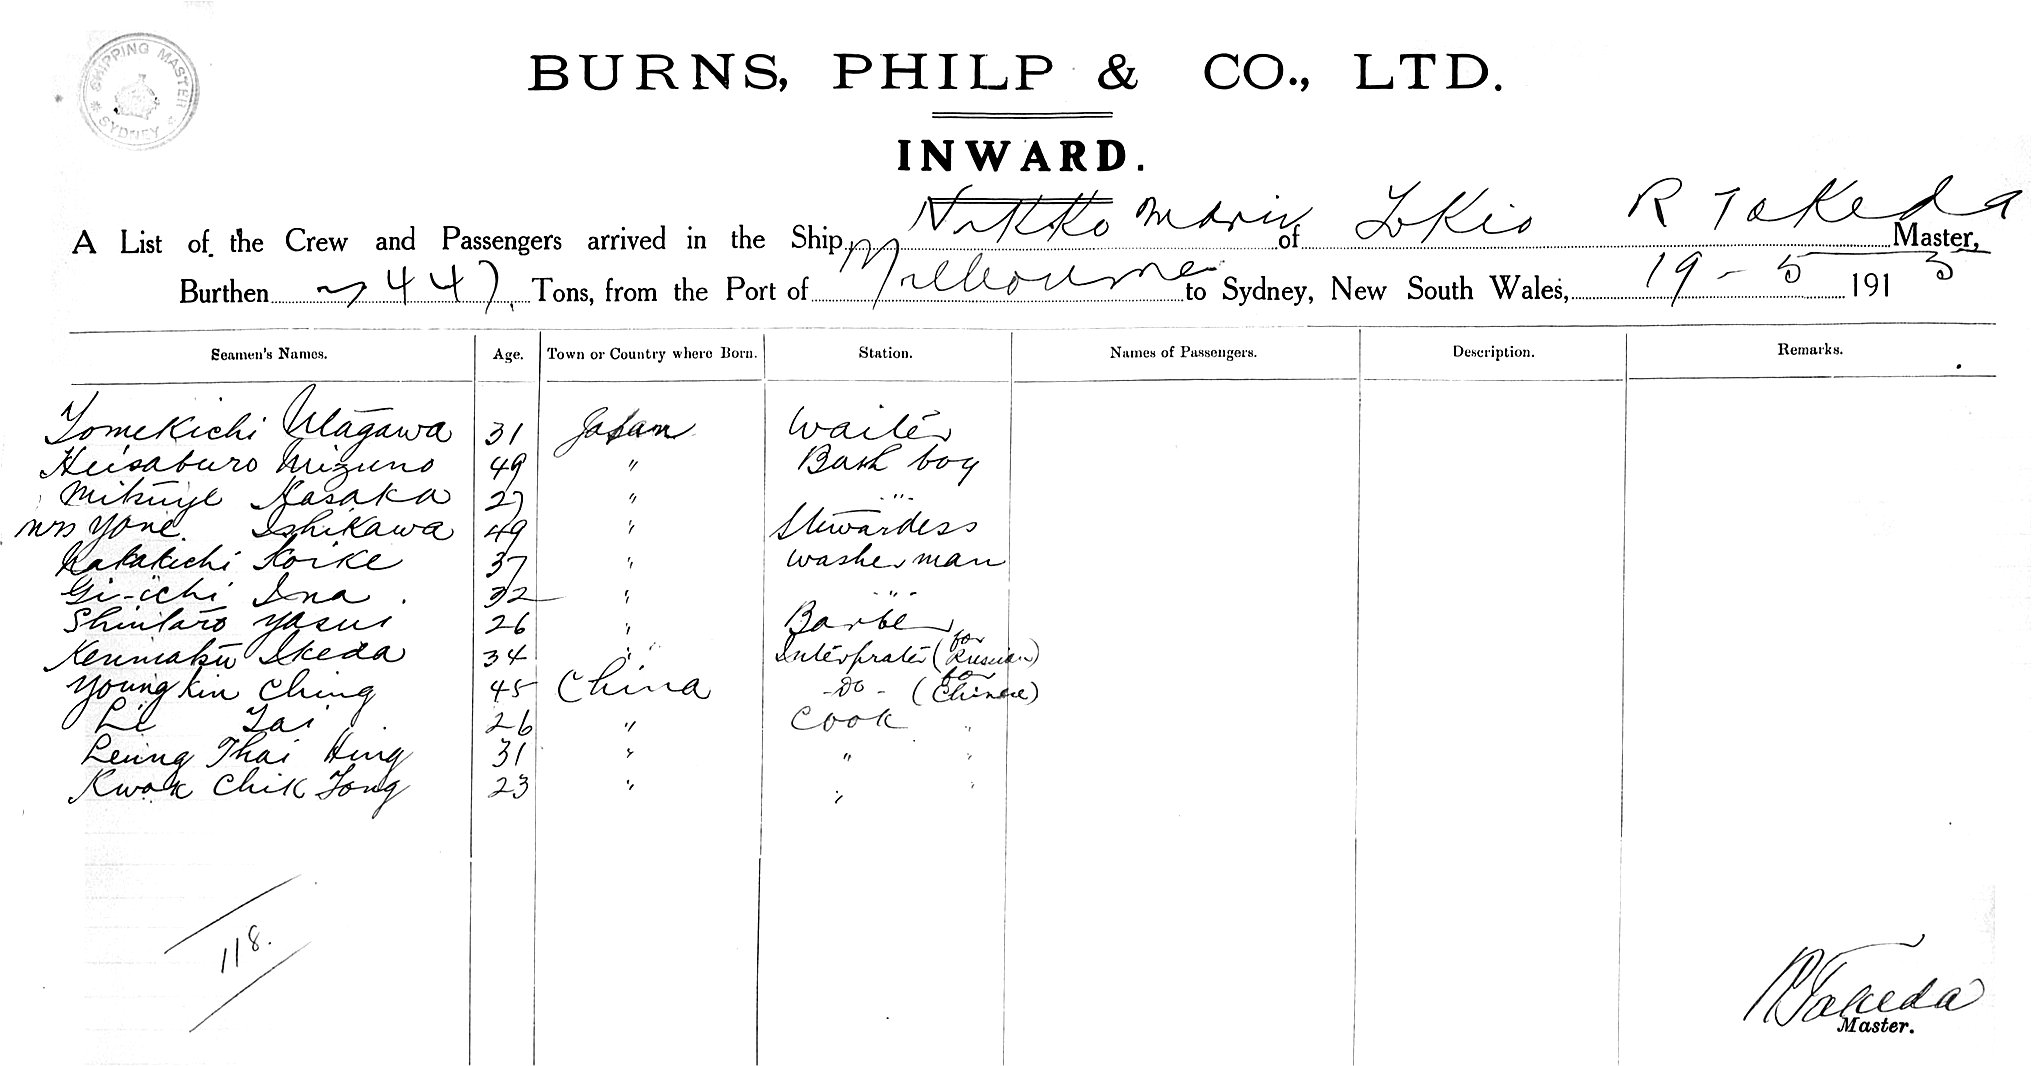 SHIPPING MASTER
SYDNEY
BURNS, PHILP & CO., LTD.
INWARD.
A List of the Crew and Passengers arrived in the Ship Nikko Maru of Tokio R Takeda Master,
Burthen 3447 Tons, from the Port of Melbourne to Sydney, New South Wales, 19-5 1913
Seamen's Names. Age. Town or Country where Born. Station. Names of Passengers. Description. Remarks.
Tomekichi Utagawa 31 Japan Waiter
Heisaburo Mizuno 49 " Bath boy
Kasaka 27 " "
Mrs Yone Ishikawa 49 " Stewardess
Nakakichi Koike 37 " washerman
Gi-ichi Ina 32 " "
Shintaro Yasui 26 " Barber
Ikeda 34 " Interprater (for Russian)
Young Kin Ching 45 China -Do- (for Chinese)
Li Tai 26 " Cook
Leung Thai Hing 31 " "
Kwok Chik Tong 23 " "
118.
R Takeda
Master.